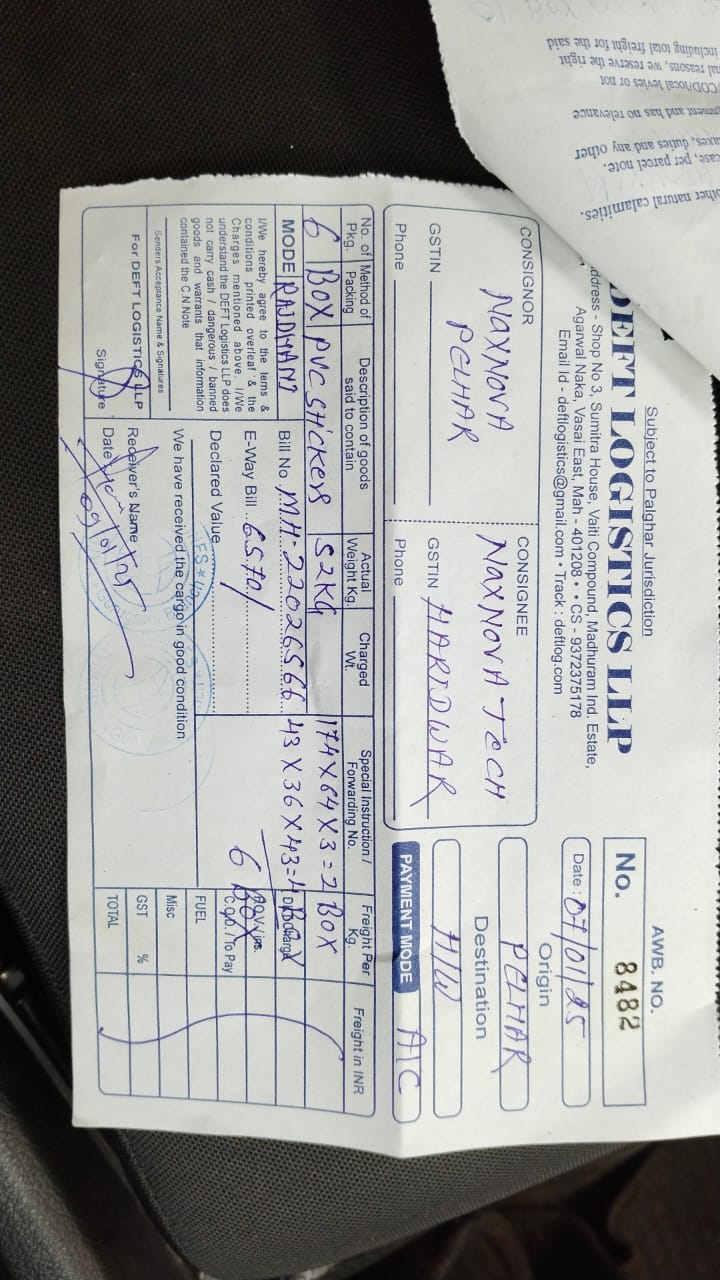 other natural calamities.
case, per parcel note.
taxes, duties and any other
gnment and has no relevance
COD/local levies or not
nal reasons, we reserve the right
including total freight for the said
Subject to Palghar Jurisdiction
DEFT LOGISTICS LLP
ddress - Shop No 3, Sumitra House, Vaiti Compound, Madhuram Ind. Estate,
Agarwal Naka, Vasai East, Mah - 401208 • • CS - 9372375178
Email Id - deftlogistics@gmail.com • Track : deftlog.com
AWB. NO.
No. 8482
Date : 07/01/25
Origin
PELHAR
Destination
H/W
PAYMENT MODE A/C
CONSIGNOR
NAXNOVA
PELHAR
GSTIN
Phone
CONSIGNEE
NAXNOVA TECH
HARIDWAR
GSTIN
Phone
No. of Pkg. Method of Packing Description of goods said to contain Actual Weight Kg. Charged Wt. Special Instruction / Forwarding No. Freight Per Kg. Freight in INR
6 BOX PVC Stickers 52KG 174X64X3=2 BOX
43X36X43=4 BOX
6 BOX
MODE
Bill No. MH-22026566
E-Way Bill 6570/
Declared Value
I/We hereby agree to the terns &
conditions printed overleaf & the
Charges mentioned above. I/We
understand the DEFT Logistics LLP does
not carry cash / dangerous / banned
goods and warrants that information
contained the C.N.Note
Senders Acceptance Name & Signatures
For DEFT LOGISTICS LLP
Signature
We have received the cargo in good condition
Receiver's Name
Date 09/01/25
C.O.D. / To Pay
FUEL
Misc
GST %
TOTAL